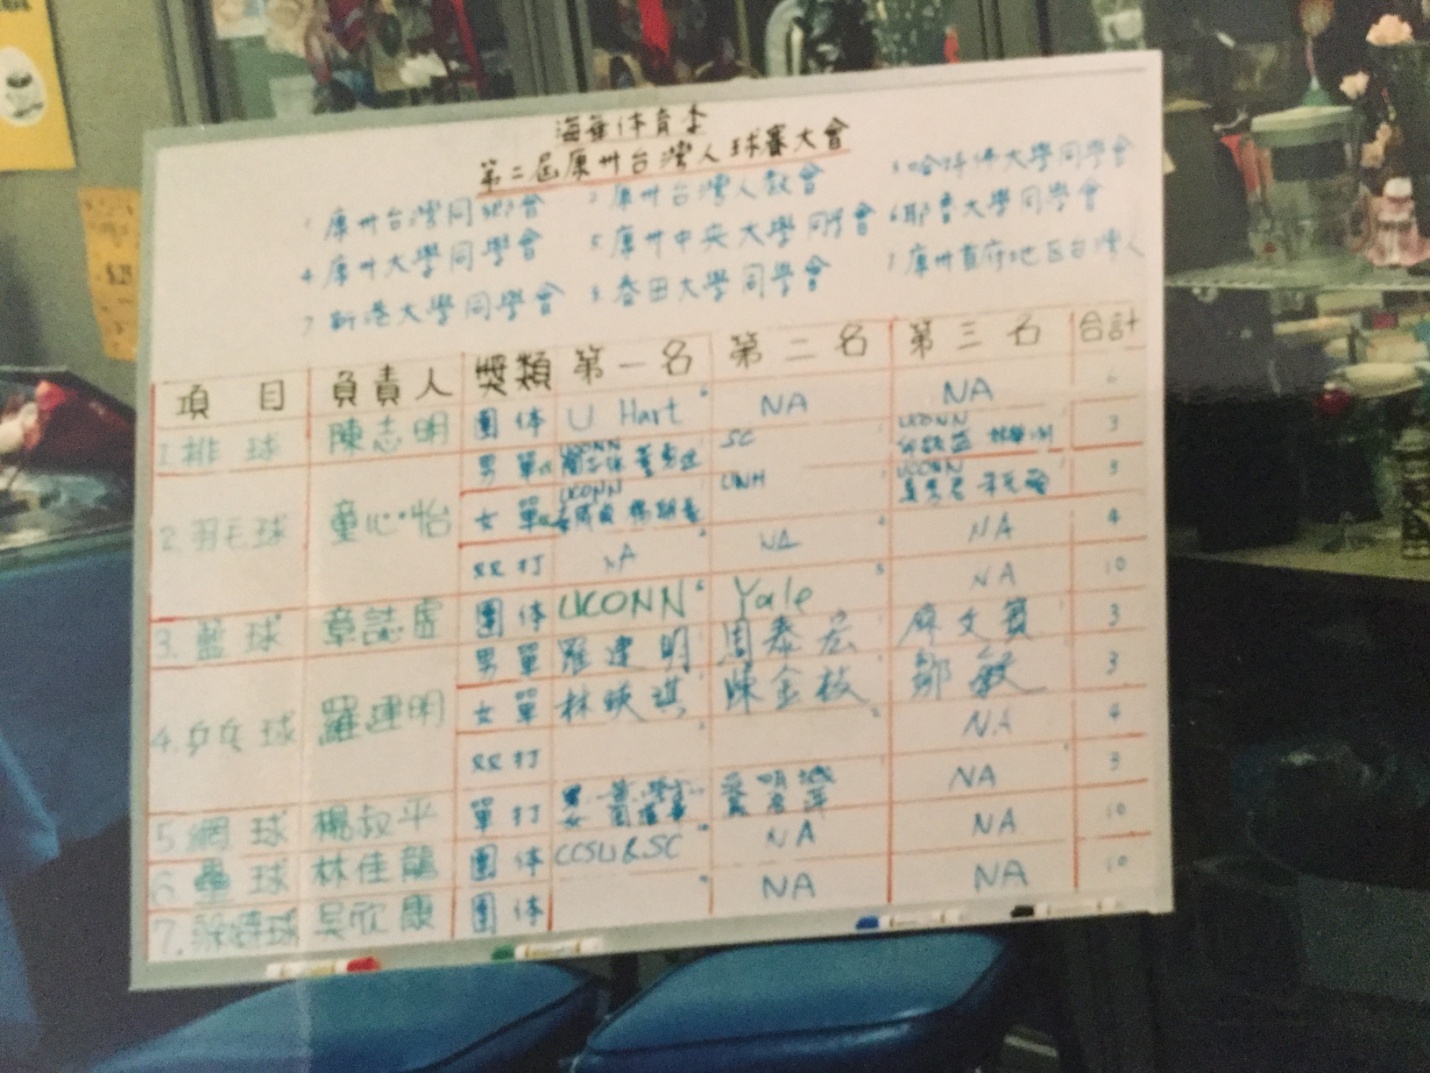 海華体育季
第二屆康州台灣人球賽大會
1 康州台灣同鄉會 2 康州台灣人教會 3 哈特佛大學同學會
4 康州大學同學會 5 康州中央大學同學會 6 耶魯大學同學會
7 新港大學同學會 8 春田大學同學會 康州首府地区台灣人
項目 負責人 獎類 第一名 第二名 第三名 合計
1. 排球 陳志明 團体 U Hart NA NA 6
男單 UCONN SC UCONN 3
2. 羽毛球 童心怡 女單 UCONN UNH UCONN 3
双打 NA NA NA 4
3. 籃球 章誌虛 團体 UCONN Yale NA 10
男單 羅建明 周泰宏 廖文賓 3
4. 乒乓球 羅建明 女單 林暎琪 陳金枝 鄒敏 3
双打 NA 4
5. 網球 楊叔平 單打 男 女 NA 3
6. 壘球 林佳龍 團体 CCSU & SC NA NA 10
7. 球 吳欣康 團体 NA NA 10